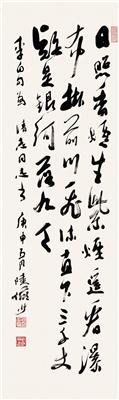 日照香炉生紫烟遥看瀑
布挂前川飞流直下三千丈
疑是银河落九天
李白句为 同志书 庚申 月陆俨少